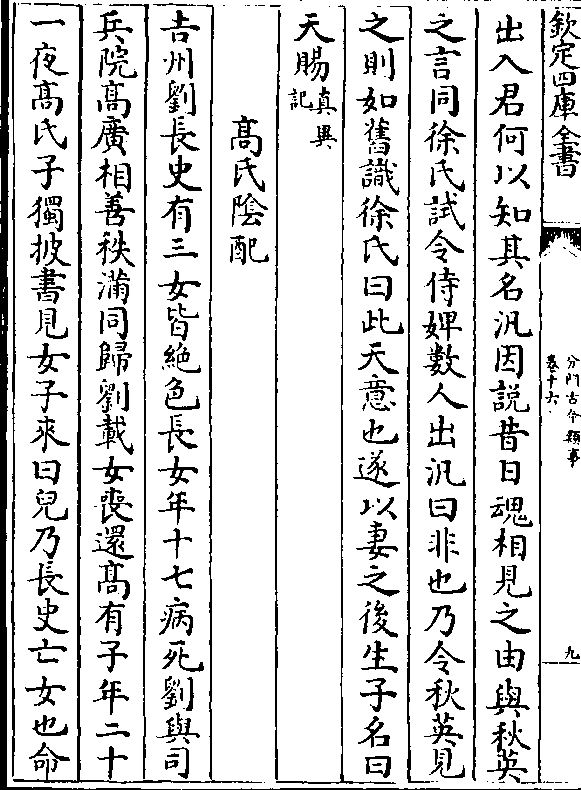 欽定四庫全書
分門古今類事
卷十六
九
出入君何以知其名汎因説昔日魂相見之由與秋英
之言同徐氏試令侍婢數人出汎曰非也乃令秋英見
之則如舊識徐氏曰此天意也遂以妻之後生子名曰
天賜真異記
高氏陰配
吉州劉長史有三女皆絶色長女年十七病死劉與司
兵院髙廣相善秩滿同歸劉載女喪還髙有子年二十
一夜髙氏子獨披書見女子來曰兒乃長史亡女也命